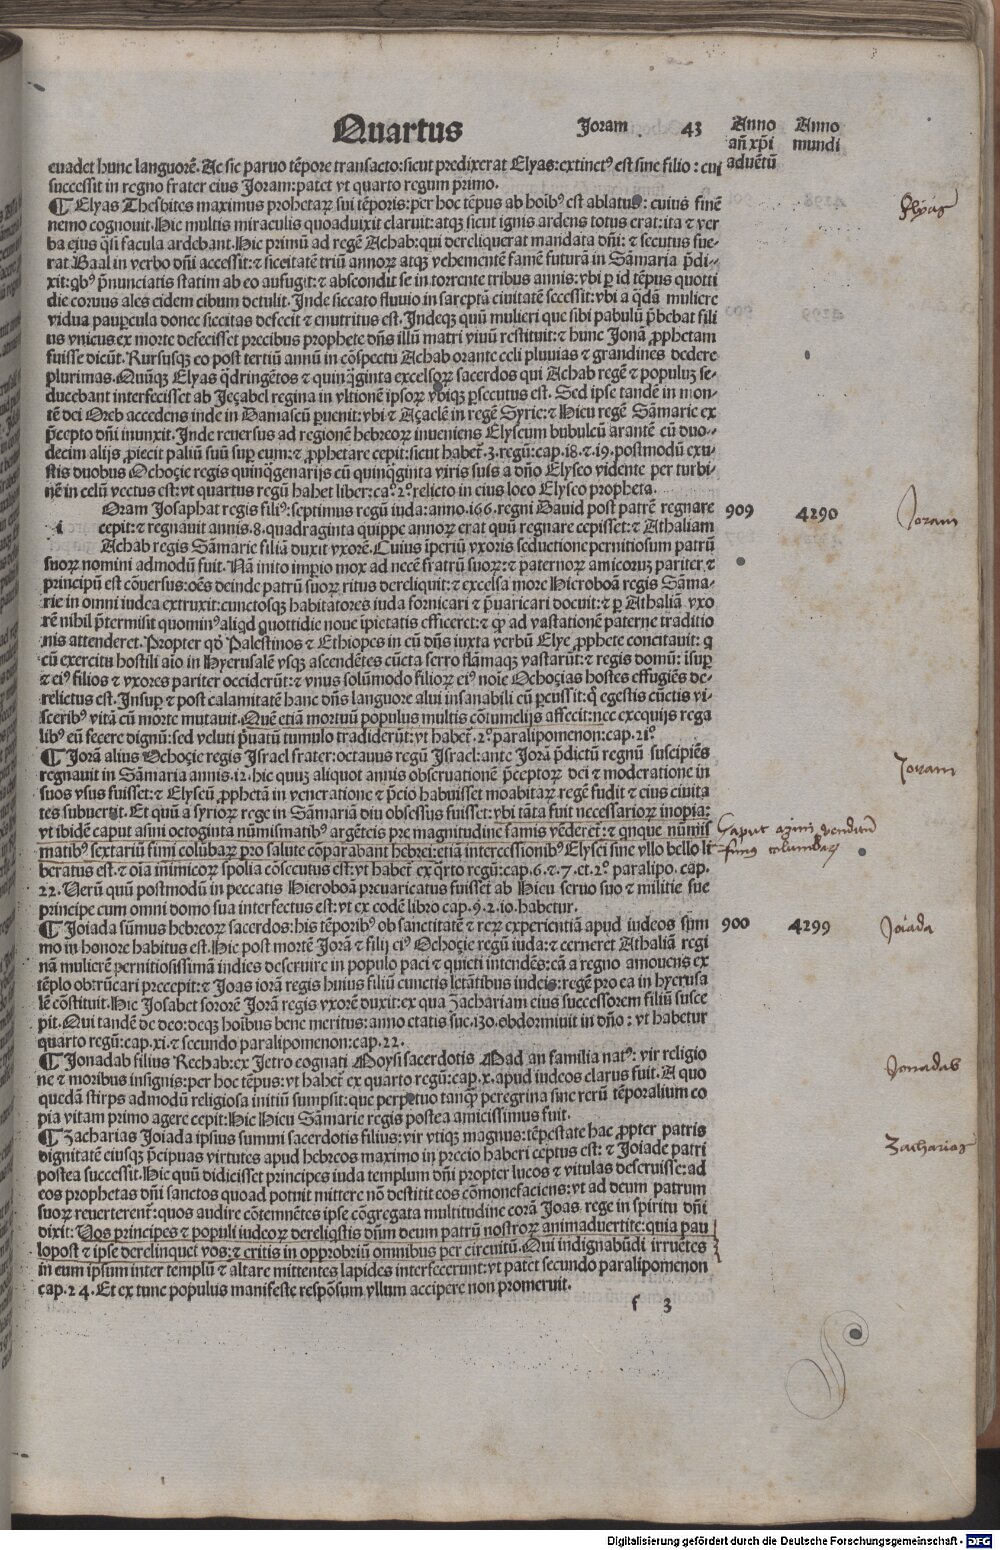 Quartus Joram 43 Anno Anno
añ xp̄i mundi
aduētū
euadet hunc languorē. Ac sic paruo tēpore transacto: sicut predixerat Elyas: extinctꝰ est sine filio: cui
successit in regno frater eius Joram: patet vt quarto regum primo.
¶ Elyas Thesbites maximus prohetaꝝ sui tēporis: per hoc tēpus ab hoībꝰ est ablatus: cuius finē
nemo cognouit. Hic multis miraculis quoaduixit claruit: atqꝫ sicut ignis ardens totus erat: ita ⁊ ver
ba eius q̄si facula ardebant. Hic primū ad regē Achab: qui dereliquerat mandata dn̄i: ⁊ secutus fue-
rat Baal in verbo dn̄i accessit: ⁊ siccitatē triū annoꝝ atqꝫ vehementē famē futurā in Sāmaria p̄di-
xit: qbꝰ p̄nunciatis statim ab eo aufugit: ⁊ abscondit se in torrente tribus annis: vbi ꝑ id tēpus quotti
die coruus ales eidem cibum detulit. Inde siccato fluuio in sareptā ciuitatē secessit: vbi a q̄dā muliere
vidua paupcula donec siccitas defecit ⁊ enutritus est. Indeqꝫ quū mulieri que sibi pabulū p̄bebat fili
us vnicus ex morte defecisset precibus prophete dn̄s illū matri viuū restituit: ⁊ hunc Jonā ꝓphetam
fuisse dicūt. Rursusqꝫ eo post tertiū annū in cōspectu Achab orante celi pluuias ⁊ grandines dedere
plurimas. Quūqꝫ Elyas q̄dringētos ⁊ quinq̄ginta excelsoꝝ sacerdos qui Achab regē ⁊ populuꝫ se-
ducebant interfecisset ab Jeçabel regina in vltionē ipsoꝝ vbiqꝫ ꝑsecutus est. Sed ipse tandē in mon-
tē dei Oreb accedens inde in Damascū ꝑuenit: vbi ⁊ Açaelē in regē Syrie: ⁊ Hieu regē Sāmarie ex
p̄cepto dn̄i inunxit. Inde reuersus ad regionē hebreoꝝ inueniens Elyseum bubulcū arantē cū duo-
decim alijs ꝓiecit paliū suū suꝑ eum: ⁊ ꝓphetare cepit: sicut habet̄. 3. regū: cap. 18. ⁊ 19. postmodū exu-
stis duobus Ochoçie regis quinq̄genarijs cū quinq̄ginta viris suis a dn̄o Elyseo vidente per turbi-
nē in celū vectus est: vt quartus regū habet liber: ca.º 2.º relicto in eius loco Elyseo propheta.
i Oram Josaphat regis filiꝰ: septimus regū iuda: anno. 166. regni Dauid post patrē regnare 909 4290
cepit: ⁊ regnauit annis. 8. quadraginta quippe annoꝝ erat quū regnare cepisset: ⁊ Athaliam
Achab regis Sāmarie filiā duxit vxorē. Cuius īperiū vxoris seductione pernitiosum patrū
suoꝝ nomini admodū fuit. Nā inito imꝑio mox ad necē fratrū suoꝝ: ⁊ paternoꝝ amicoruꝫ pariter ⁊
principū est cōuersus: oēs deinde patrū suoꝝ ritus dereliquit: ⁊ excelsa more Hieroboā regis Sāma-
rie in omni iudea extruxit: cunctosqꝫ habitatores iuda fornicari ⁊ p̄uaricari docuit: ⁊ ꝑ Athaliā vxo
rē nihil p̄termisit quominꝰ aliqd quottidie noue īpietatis efficeret: ⁊ qꝫ ad vastationē paterne traditio
nis attenderet. Propter qđ Palestinos ⁊ Ethiopes in eū dn̄s iuxta verbū Elye ꝓphete concitauit: q
cū exercitu hostili aīo in Hyerusalē vsqꝫ ascendētes cūcta ferro flāmaqꝫ vastarūt: ⁊ regis domū: īsuꝑ
⁊ eiꝰ filios ⁊ vxores pariter occiderūt: ⁊ vnus solūmodo filioꝝ eiꝰ noīe Ochoçias hostes effugiēs de-
relictus est. Insuꝑ ⁊ post calamitatē hanc dn̄s languore alui insanabili eū ꝑcussit: q̄ egestis cūctis vi-
sceribꝰ vitā cū morte mutauit. Quē etiā mortuū populus multis cōtumelijs affecit: nec exequijs rega
libꝰ eū fecere dignū: sed veluti p̄uatū tumulo tradiderūt: vt habet̄. 2.º paralipomenon: cap. 21.º
¶ Jorā alius Ochoçie regis Israel frater: octauus regū Israel: ante Jorā p̄dictū regnū suscipiēs
regnauit in Sāmaria annis. 12. hic quuꝫ aliquot annis obseruationē p̄ceptoꝝ dei ⁊ moderatione in
suos vsus fuisset: ⁊ Elyseū ꝓphetā in veneratione ⁊ p̄cio habuisset moabitaꝝ regē fudit ⁊ eius ciuita
tes subuertit. Et quū a syrioꝝ rege in Sāmariā diu obsessus fuisset: vbi tāta fuit necessarioꝝ inopia:
vt ibidē caput asini octoginta nūmismatibꝰ argēteis pre magnitudine famis vēderet̄: ⁊ qnque nūmis
matibꝰ sextariū fimi colūbaꝝ pro salute cōparabant hebrei: etiā intercessionibꝰ Elysei sine vllo bello li
beratus est. ⁊ oīa inimicoꝝ spolia cōsecutus est: vt habet̄ ex q̄rto regū: cap. 6. ⁊. 7. et. 2.º paralipo. cap.
22. Verū quū postmodū in peccatis Hieroboā preuaricatus fuisset ab Hieu seruo suo ⁊ militie sue
principe cum omni domo sua interfectus est: vt ex eodē libro cap. 9. 2. 10. habetur.
¶ Joiada sūmus hebreoꝝ sacerdos: his tēporibꝰ ob sanctitatē ⁊ reꝝ experientiā apud iudeos sūm 900 4299
mo in honore habitus est. Hic post mortē Jorā ⁊ filij eiꝰ Ochoçie regū iuda: ⁊ cerneret Athaliā regi
nā mulierē ꝑernitiosissimā indies deseruire in populo paci ⁊ quieti intendēs: eā a regno amouens ex
tēplo obtrūcari precepit: ⁊ Joas iorā regis huius filiū cunctis letātibus iudeis: regē pro ea in hyerusa
lē cōstituit. Hic Josabet sororē Jorā regis vxorē duxit: ex qua Zachariam eius successorem filiū susce
pit. Qui tandē de deo: deqꝫ hoībus bene meritus: anno etatis sue. 130. obdormiuit in dn̄o: vt habetur
quarto regū: cap. xi. ⁊ secundo paralipomenon: cap. 22.
¶ Jonadab filius Rechab: ex Jetro cognati Moysi sacerdotis Mad an familia natꝰ: vir religio
ne ⁊ moribus insignis: per hoc tēpus: vt habet̄ ex quarto regū: cap. x. apud iudeos clarus fuit. A quo
quedā stirps admodū religiosa initiū sumpsit: que perpetuo tanqꝫ peregrina sine rerū tēporalium co
pia vitam primo agere cepit: Hic Hieu Sāmarie regis postea amicissimus fuit.
¶ Zacharias Joiada ipsius summi sacerdotis filius: vir vtiqꝫ magnus: tēpestate hac ꝓpter patris
dignitatē eiusqꝫ p̄cipuas virtutes apud hebreos maximo in precio haberi ceptus est: ⁊ Joiade patri
postea successit. Hic quū didicisset principes iuda templum dn̄i propter lucos ⁊ vitulas deseruisse: ad
eos prophetas dn̄i sanctos quoad potuit mittere nō destitit eos cōmonefaciens: vt ad deum patrum
suoꝝ reuerterent̄: quos audire cōtemnētes ipse cōgregata multitudine corā Joas rege in spiritu dn̄i
dixit: Vos principes ⁊ populi iudeoꝝ dereliq̄stis dn̄m deum patrū nostroꝝ animaduertite: quia pau
lopost ⁊ ipse derelinquet vos: ⁊ eritis in opprobriū omnibus per circuitū. Qui indignabūdi irruētes
in eum ipsum inter templū ⁊ altare mittentes lapides interfecerunt: vt patet secundo paralipomenon
cap. 24. Et ex tunc populus manifeste respōsum vllum accipere non promeruit.
f 3
Elyas
Joram
Joram
Caput asini venditū
fimus columbaꝝ
Joiada
Jonadab
Zacharias
Digitalisierung gefördert durch die Deutsche Forschungsgemeinschaft - DFG